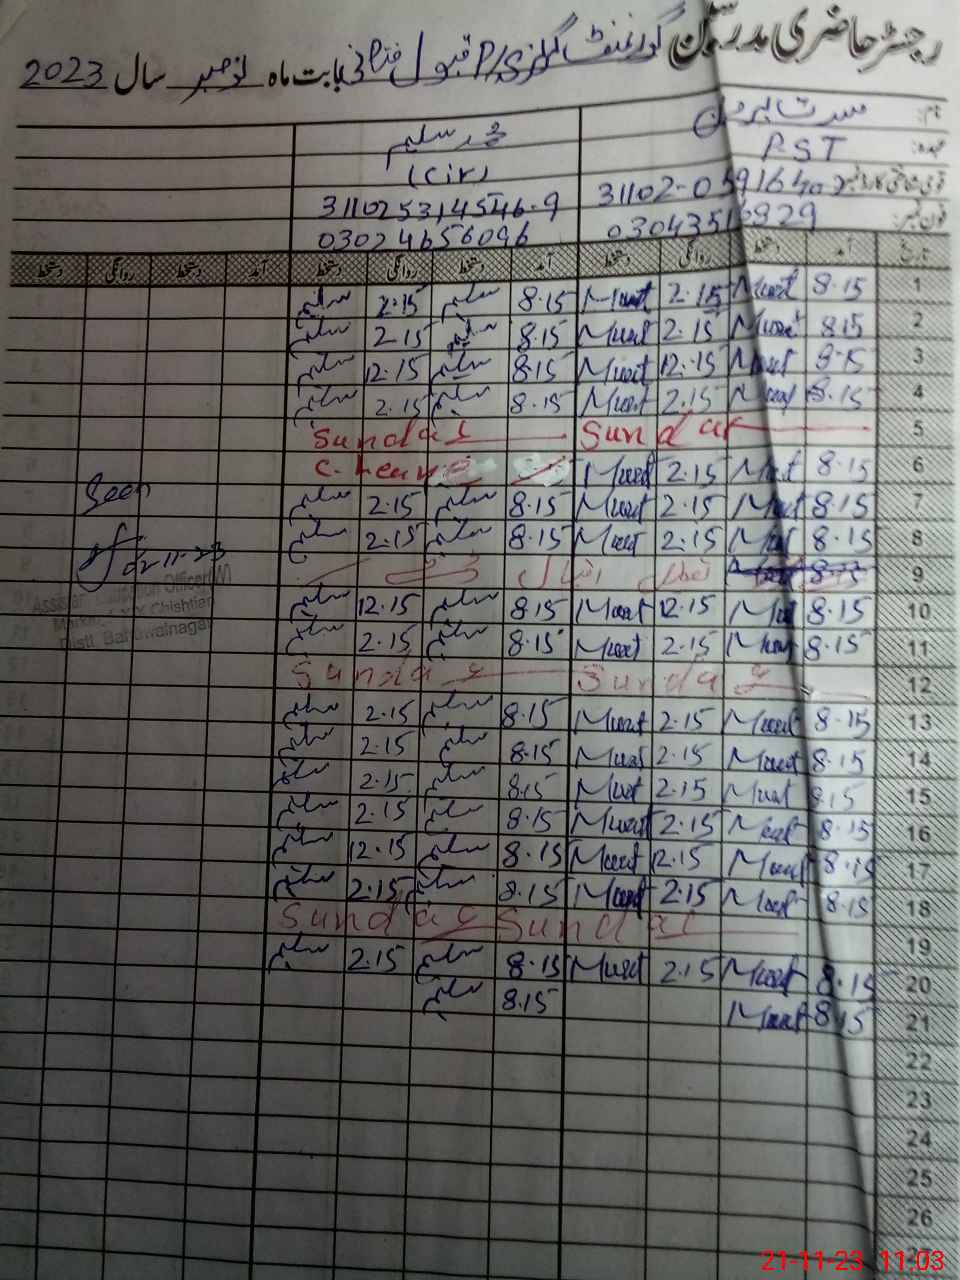 رجسٹر حاضری مدرسین گورنمنٹ گرلز P/S قبول بابت ماہ نومبر سال 2023
نام: مسرت پروین محمد سلیم
عہدہ: PST (Cir)
قومی شناختی کارڈ نمبر 31102-0591640 3110253145546-9
فون نمبر: 03043516929 03024656096
تاریخ آمد دستخط روانگی دستخط آمد دستخط روانگی دستخط آمد دستخط روانگی دستخط
1 8.15 Must 2.15 Must 8.15 سلیم 2.15 سلیم
2 8.15 Must 2.15 Must 8.15 سلیم 2.15 سلیم
3 8.15 Must 12.15 Must 8.15 سلیم 12.15 سلیم
4 8.15 Must 2.15 Must 8.15 سلیم 2.15 سلیم
5 Sunday Sunday
6 8.15 Must 2.15 Must C. Leave
7 8.15 Must 2.15 Must 8.15 سلیم 2.15 سلیم
Seen
8 8.15 Must 2.15 Must 8.15 سلیم 2.15 سلیم
02-11-23
9 8.15 تعطیل اقبال ڈے
Assistant Education Officer (W)
10 8.15 Must 12.15 Must 8.15 سلیم 12.15 سلیم
Chishtian
11 8.15 Must 2.15 Must 8.15 سلیم 2.15 سلیم
Distt. Bahawalnagar
12 Sunday Sunday
13 8.15 Must 2.15 Must 8.15 سلیم 2.15 سلیم
14 8.15 Must 2.15 Must 8.15 سلیم 2.15 سلیم
15 8.15 Must 2.15 Must 8.15 سلیم 2.15 سلیم
16 8.15 Must 2.15 Must 8.15 سلیم 2.15 سلیم
17 8.15 Must 12.15 Must 8.15 سلیم 12.15 سلیم
18 8.15 Must 2.15 Must 8.15 سلیم 2.15 سلیم
19 Sunday Sunday
20 8.15 Must 2.15 Must 8.15 سلیم 2.15 سلیم
21 8.15 Must 8.15 سلیم
22
23
24
25
26
21-11-23 11:03